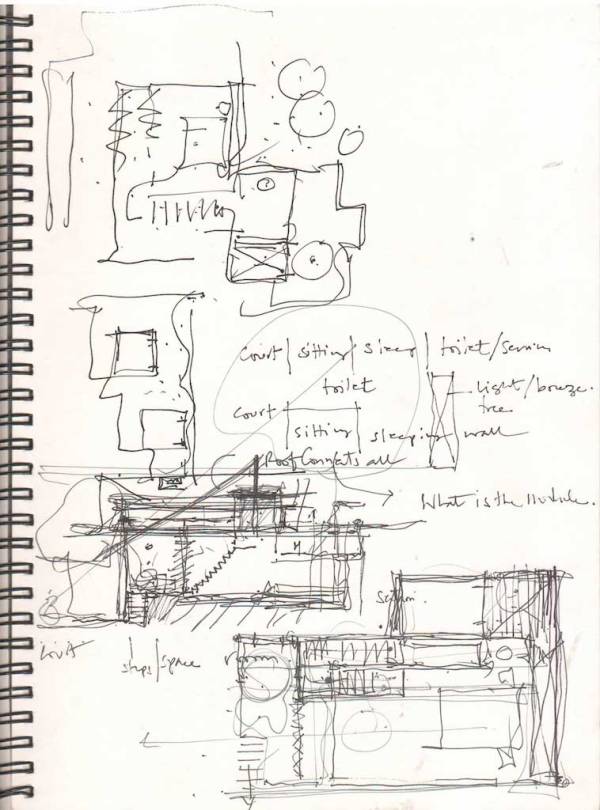 Court | sitting | sleep | toilet/service
toilet
light/breeze.
tree
Court
sitting
sleeping
wall
Roof Connects all
What is the Module.
Section.
Court
steps/space
room